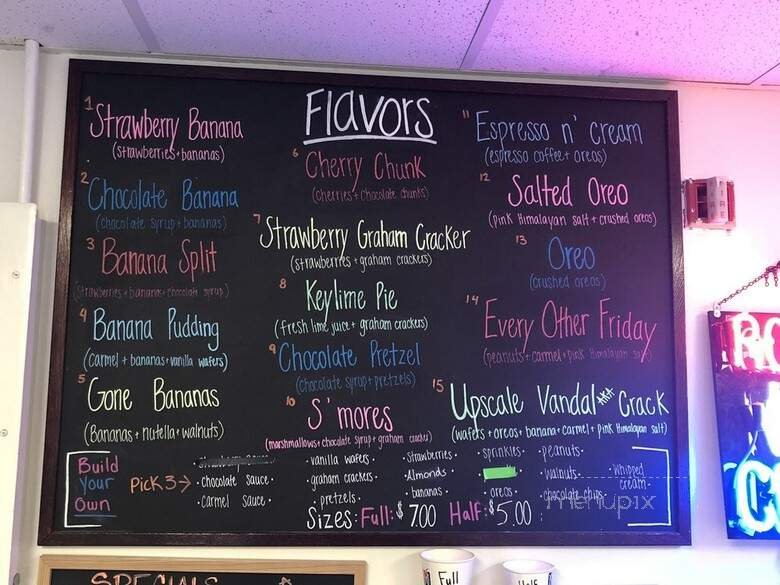 Flavors
1 Strawberry Banana
(strawberries + bananas)
2 Chocolate Banana
(chocolate syrup + bananas)
3 Banana Split
(strawberries + bananas + chocolate syrup)
4 Banana Pudding
(carmel + bananas + vanilla wafers)
5 Gone Bananas
(Bananas + nutella + walnuts)
6 Cherry Chunk
(cherries + chocolate chunks)
7 Strawberry Graham Cracker
(strawberries + graham crackers)
8 Keylime Pie
(fresh lime juice + graham crackers)
9 Chocolate Pretzel
(chocolate syrup + pretzels)
10 S'mores
(marshmallows + chocolate syrup + graham cracker)
11 Espresso n' cream
(espresso coffee + oreos)
12 Salted Oreo
(pink Himalayan salt + crushed oreos)
13 Oreo
(crushed oreos)
14 Every Other Friday
(peanuts + carmel + pink Himalayan salt)
15 Upscale Vandal AKA Crack
(wafers + oreos + banana + carmel + pink Himalayan salt)
Build
Your
Own
Pick 3 →
• chocolate sauce •
• carmel sauce •
• vanilla wafers •
graham crackers •
• pretzels •
• strawberries •
Almonds •
• bananas •
sprinkles •
oreos •
peanuts •
walnuts •
chocolate chips •
whipped
cream
Sizes: Full: $7.00 Half: $5.00
menupix
SPECIALS
Full
Half